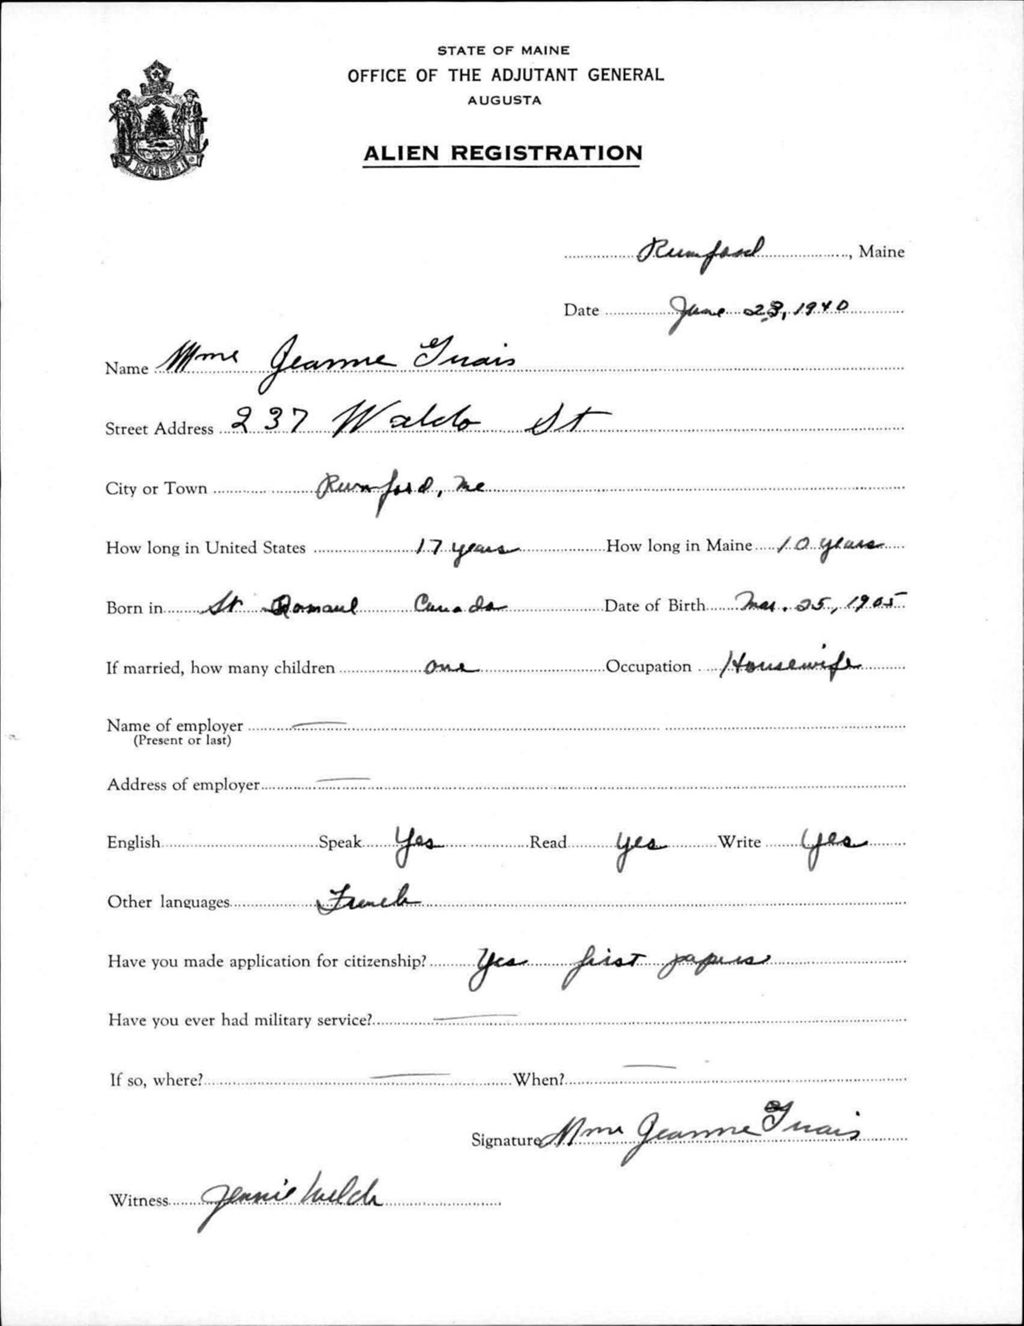 STATE OF MAINE
OFFICE OF THE ADJUTANT GENERAL
AUGUSTA
ALIEN REGISTRATION
MAINE
Rumford, Maine
Date June 28, 1940
Name Mme Jeanne
Street Address 237 Waldo St
City or Town Rumford, Me
How long in United States 17 years How long in Maine 10 years
Born in St Canada Date of Birth Mar. 25, 1905
If married, how many children one Occupation Housewife
Name of employer
(Present or last)
Address of employer
English Speak Yes Read yes Write yes
Other languages French
Have you made application for citizenship? Yes first papers
Have you ever had military service?
If so, where? When?
Signature Mme Jeanne
Witness Jennie Welch